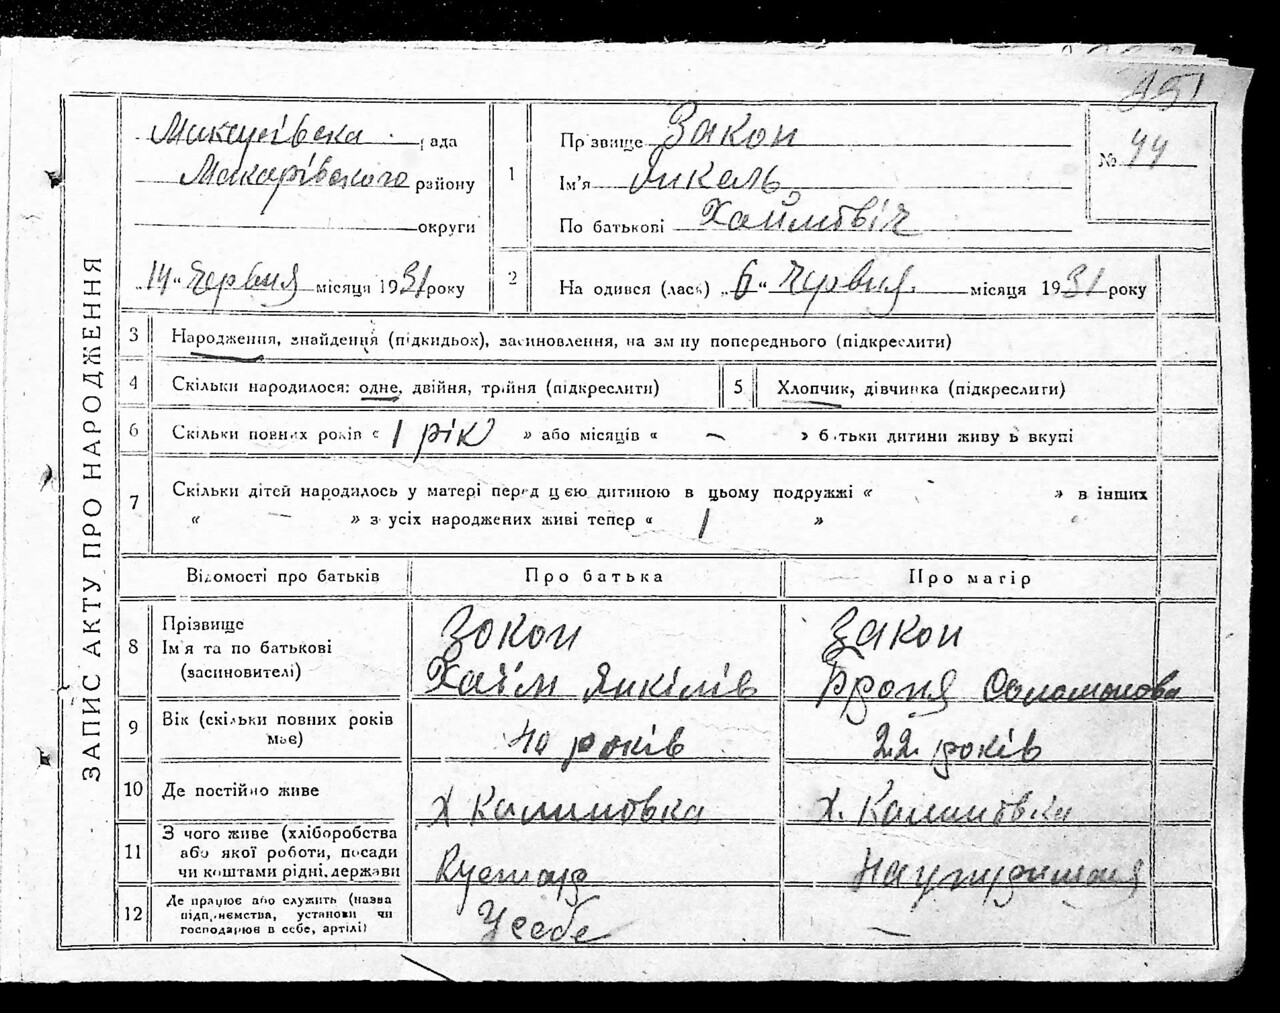 151
ЗАПИС АКТУ ПРО НАРОДЖЕННЯ
Макарівска рада
Макарівского району
округи
„14“ Червня місяця 1931 року
1
Прізвище Закон
Ім'я Янкель
По батькові Хаймовіч
№ 44
2
На одився (лась) „6“ Червня місяця 1931 року
3 Народження, знайдення (підкидьок), засиновлення, на зм ну попереднього (підкреслити)
4 Скільки народилося: одне, двійня, трійня (підкреслити)
5 Хлопчик, дівчинка (підкреслити)
6 Скільки повних років « 1 рік » або місяців « — » б тьки дитини живу ь вкупі
7 Скільки дітей народилось у матері перед цією дитиною в цьому подружжі « » в інших
« — » з усіх народжених живі тепер « 1 »
Відомості про батьків
Про батька
Про матір
8 Прізвище
Ім'я та по батькові
(засиновителі)
Зокон
Хаїм Янкілів
Закон
Броня Соломонова
9 Вік (скільки повних років має)
40 років
22 років
10 Де постійно живе
х Калиновка
х. Калиновка
11 З чого живе (хліборобства
або якої роботи, посади
чи коштами рідні, держави
Кустар
12 Де працює або служить (назва
підп.иємства, установи чи
господарює в себе, артілі)
У себе
—